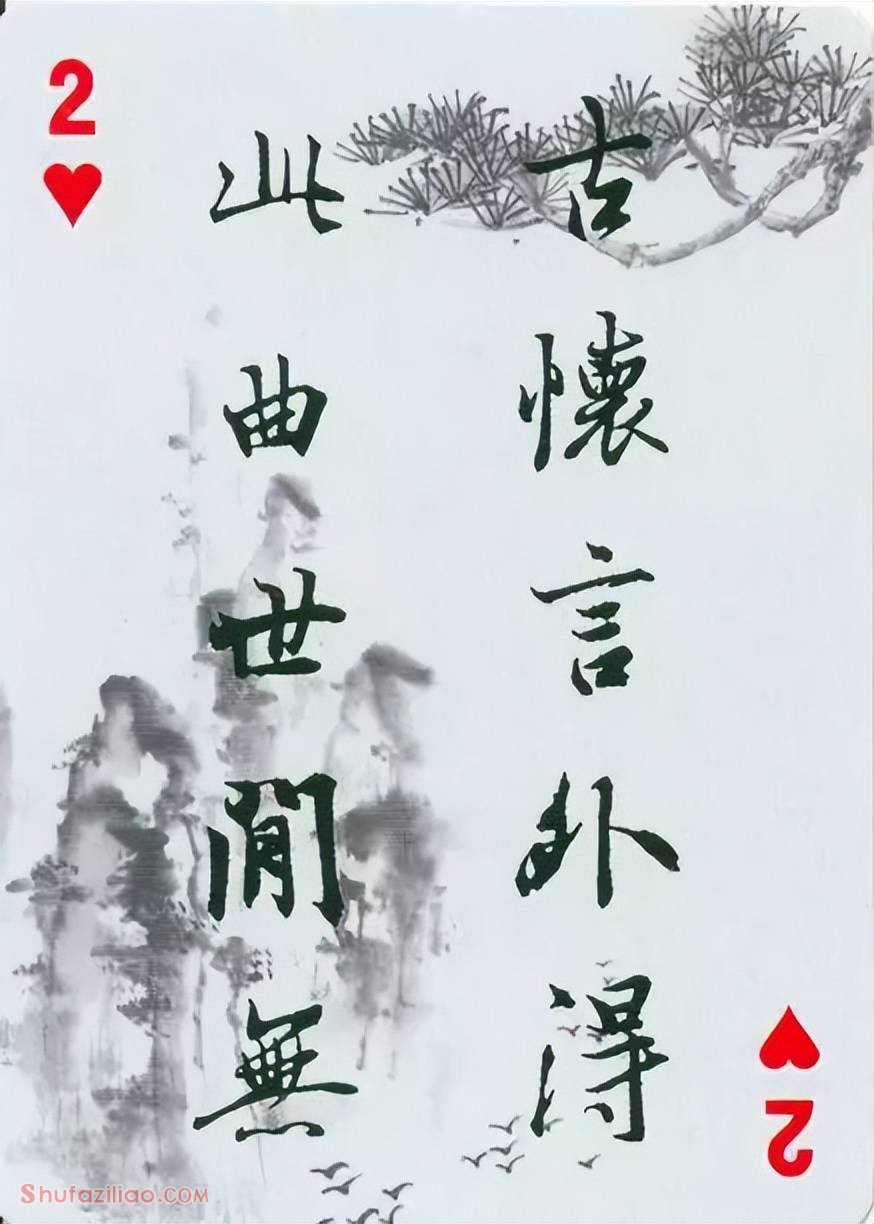 2
古懷言外得
此曲世間無
2
Shufaziliao.com